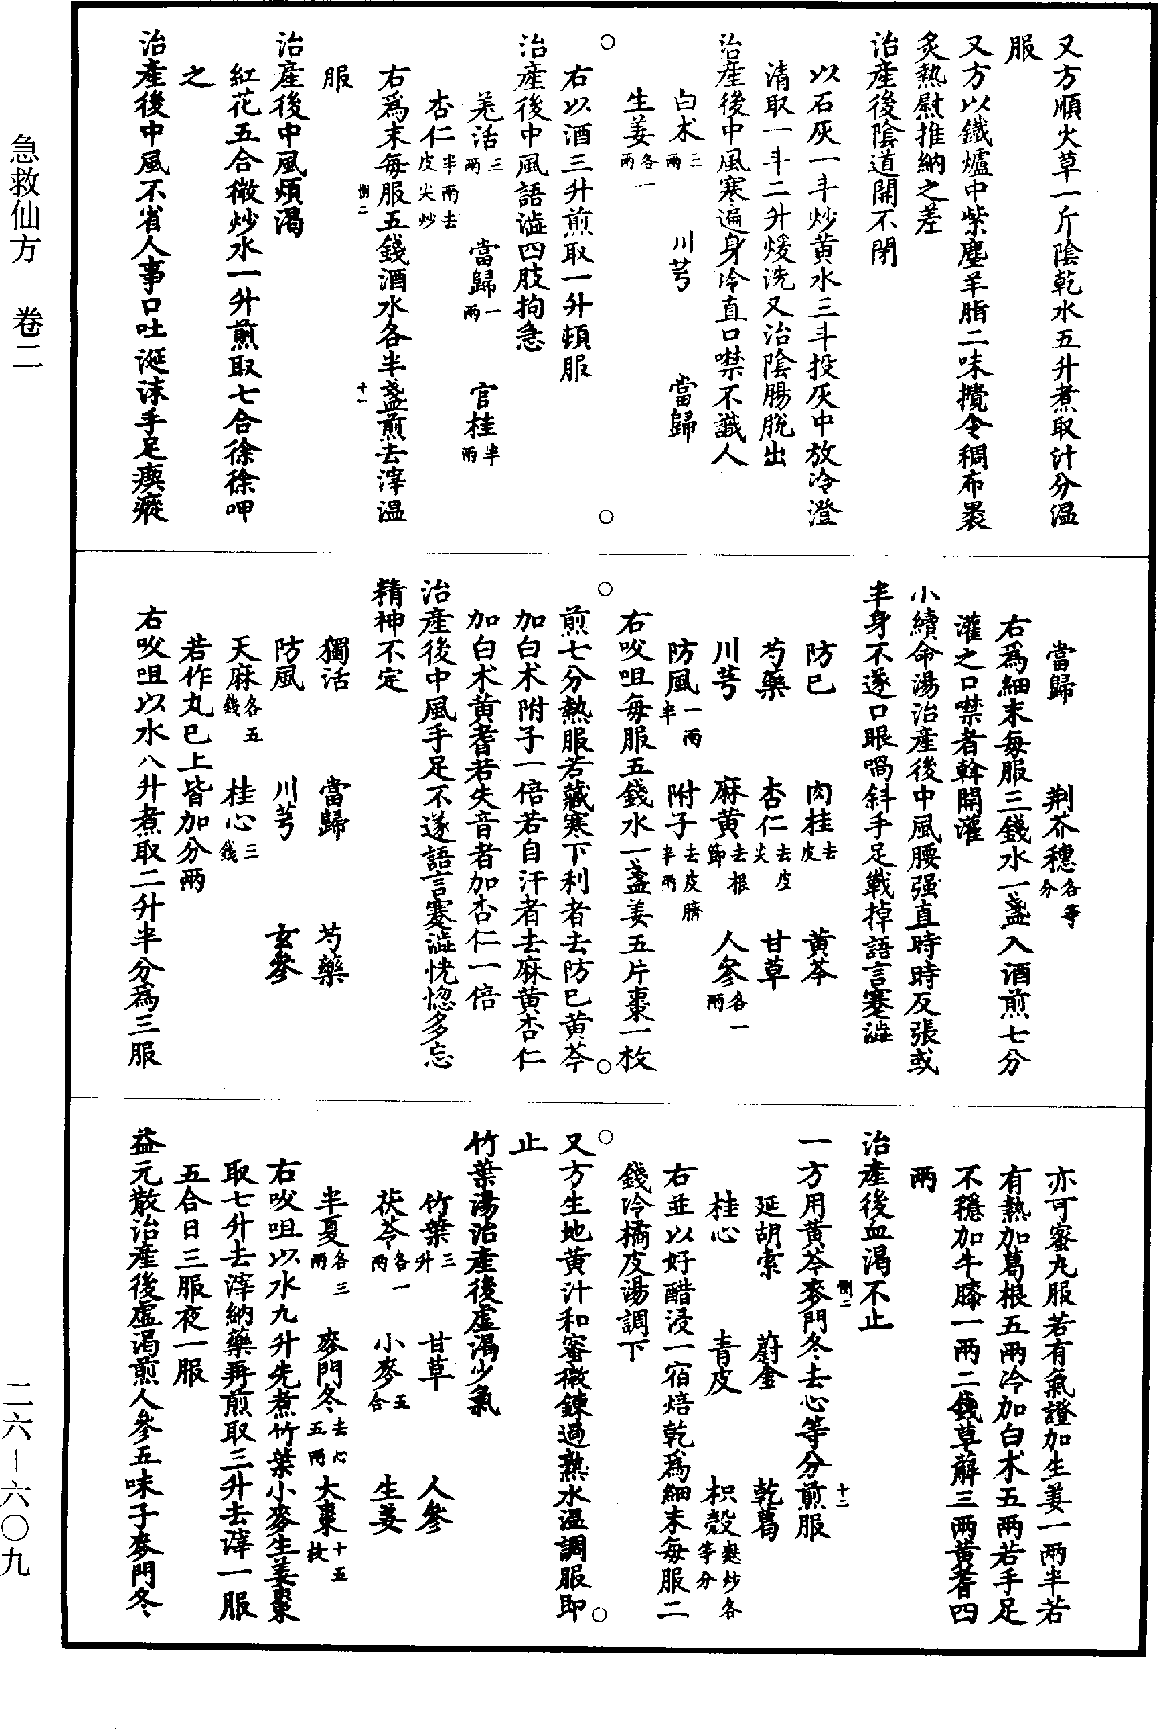 又方順火草一斤陰乾水五升煮取汁分溫
服
又方以鐵爐中紫塵羊脂二味攪令稠布裹
炙熱熨推納之差
治產後陰道開不閉
以石灰一斗炒黃水三斗投灰中放冷澄
清取一斗二升煖洗又治陰腸脫出
治產後中風寒遍身冷直口噤不識人
白朮三兩 川芎 當歸
生姜各一兩
○ ○
右以酒三升煎取一升頓服
治產後中風語澁四肢拘急
羌活三兩 當歸一兩 官桂半兩
杏仁半兩去皮尖炒
右爲末每服五錢酒水各半盞煎去滓溫
惻二 十一
服
治產後中風煩渴
紅花五合微炒水一升煎取七合徐徐呷
之
治產後中風不省人事口吐涎沫手足瘈瘲
當歸 荆芥穗各等分
右爲細末每服三錢水一盞入酒煎七分
灌之口噤者斡開灌
小續命湯治產後中風腰强直時時反張或
半身不遂口眼喎斜手足戰掉語言蹇澁
防巳 肉桂去皮 黃芩
芍藥 杏仁去皮尖 甘草
川芎 麻黃去根節 人參各一兩
防風一兩半 附子去皮臍半兩
右㕮咀每服五錢水一盞姜五片棗一枚
○ ○
煎七分熱服若藏寒下利者去防巳黃芩
加白朮附子一倍若自汗者去麻黃杏仁
加白朮黃耆若失音者加杏仁一倍
治產後中風手足不遂語言蹇澁恍惚多忘
精神不定
獨活 當歸 芍藥
防風 川芎 玄參
天麻各五錢 桂心三錢
若作丸巳上皆加分兩
右㕮咀以水八升煮取二升半分爲三服
亦可蜜丸服若有氣證加生姜一兩半若
有熱加葛根五兩冷加白朮五兩若手足
不穩加牛膝一兩二錢草薢三兩黃耆四
兩
治產後血渴不止
一方用黃芩麥門冬去心等分煎服
惻二 十二
延胡索 蔚金 乾葛
桂心 青皮 枳殼麩炒各等分
右並以好醋浸一宿焙乾爲細末每服二
錢冷橘皮湯調下
○ ○
又方生地黃汁和蜜微鍊過熟水溫調服即
止
竹葉湯治產後虛渴少氣
竹葉三升 甘草 人參
茯苓各一兩 小麥五合 生姜
半夏各三兩 麥門冬去心五兩 大棗十五枚
右㕮咀以水九升先煮竹葉小麥生姜棗
取七升去滓納藥再煎取三升去滓一服
五合日三服夜一服
益元散治產後虛渴煎人參五味子麥門冬
急救仙方 卷二
二六-六〇九